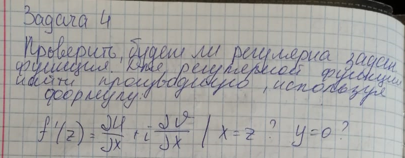 Задача 4
Проверить, будет ли регулярна задан.
функция. Для регулярной функции
найти производную, используя
формулу.
f'(z) = ∂U/∂x + i ∂V/∂x | x=z ? y=0 ?